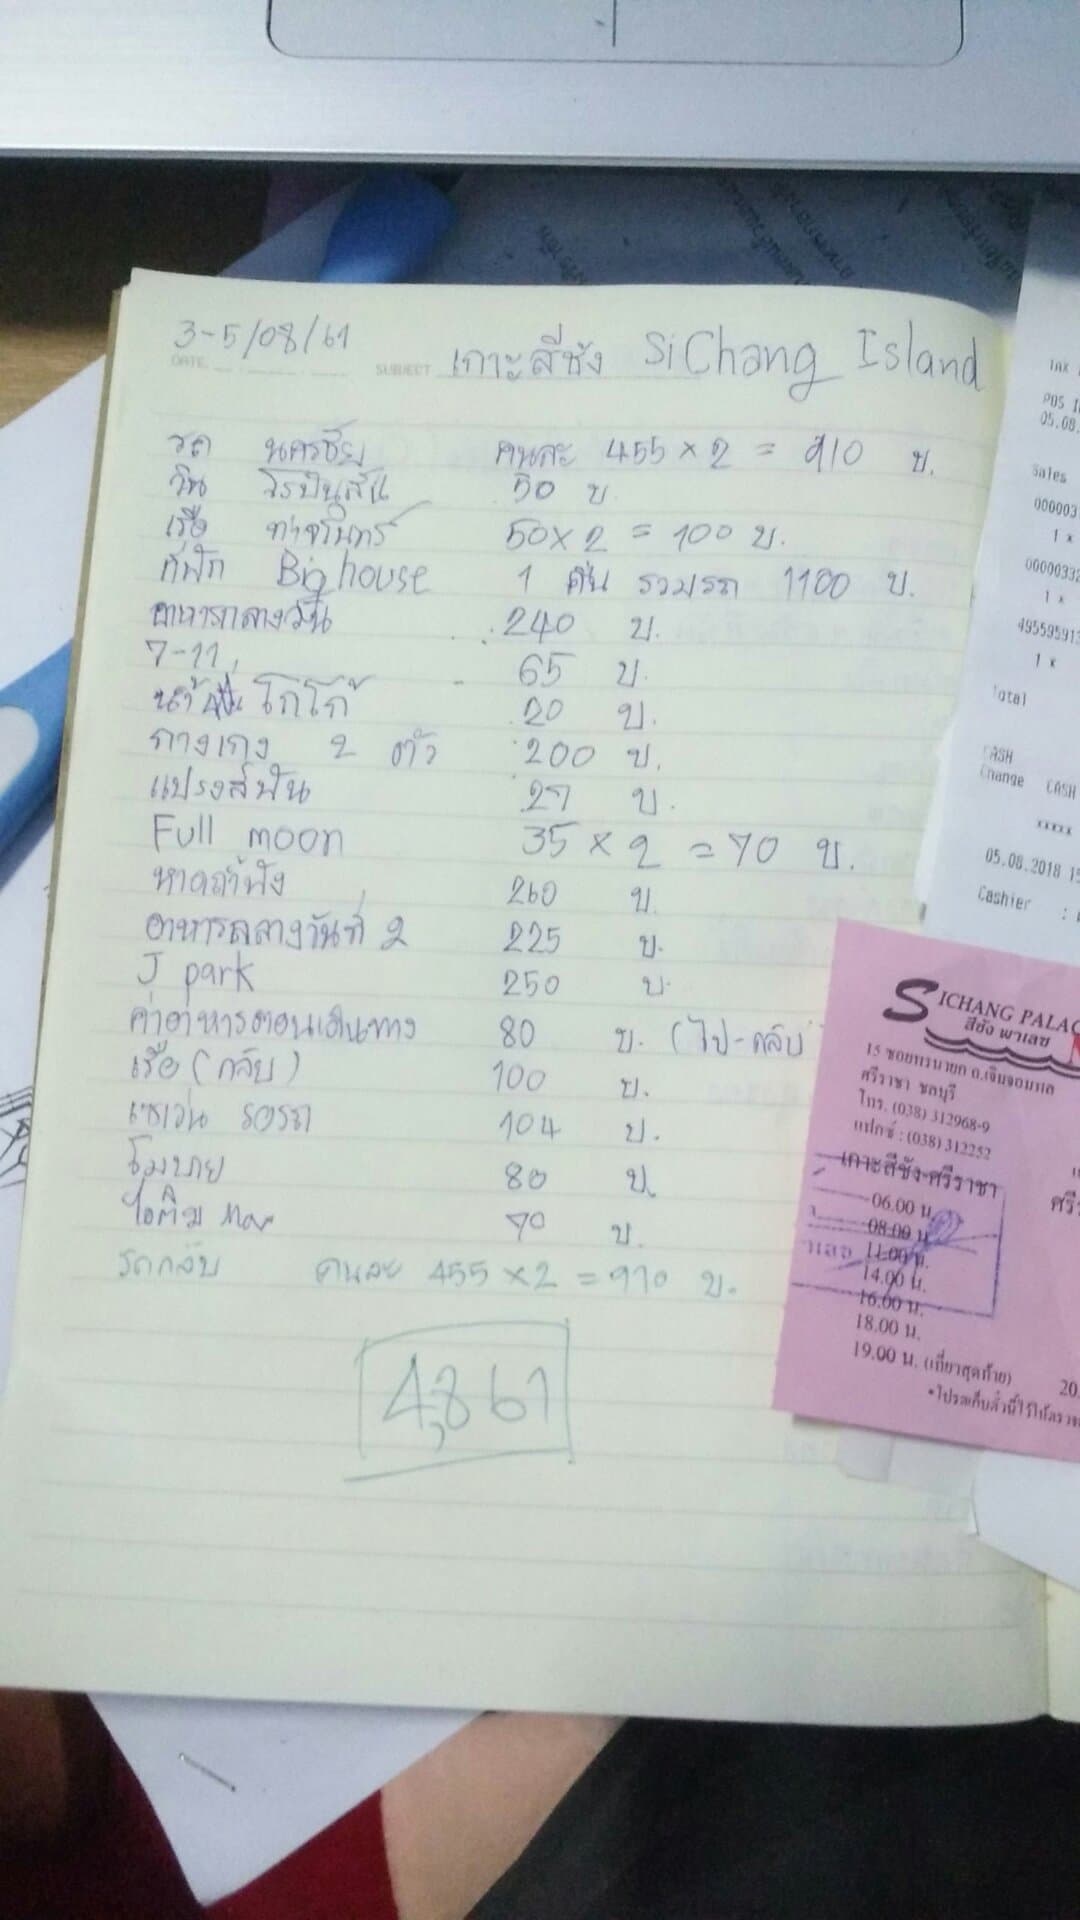 3-5/08/61
DATE
SUBJECT
เกาะสีชัง SiChang Island
รถ นครชัย คนละ 455 x 2 = 910 บ.
วิน โรบินสัน 50 บ.
เรือ ท่าจรินทร์ 50 x 2 = 100 บ.
ที่พัก Bighouse 1 คืน รวมรถ 1100 บ.
อาหารกลางวัน 240 บ.
7-11 65 บ.
น้ำปั่น โกโก้ 20 บ.
กางเกง 2 ตัว 200 บ.
แปรงสีฟัน 27 บ.
Full moon 35 x 2 = 70 บ.
หาดถ้ำพัง 260 บ.
อาหารกลางวันที่ 2 225 บ.
J park 250 บ.
ค่าอาหารตอนเดินทาง 80 บ. (ไป-กลับ
เรือ (กลับ) 100 บ.
เซเว่น รอรถ 104 บ.
โมบาย 80 บ.
ไอติม 70 บ.
รถกลับ คนละ 455 x 2 = 910 บ.
4,861
TAX
POS
05.08.
Sales
000003
1 x
0000033
1 x
495595913
1 x
Total
CASH
Change CASH
xxxx
05.08.2018 15
Cashier :
SICHANG PALAC
สีชัง พาเลซ
15 ซอยทรนายก ถ.เจิมจอมพล
ศรีราชา ชลบุรี
โทร. (038) 312968-9
แฟกซ์ : (038) 312252
เกาะสีชัง-ศรีราชา
ศรี
06.00 น.
08.00 น.
11.00 น.
14.00 น.
16.00 น.
18.00 น.
19.00 น. (เที่ยวสุดท้าย)
20.
*โปรดเก็บตั๋วนี้ไว้ให้ตรวจ